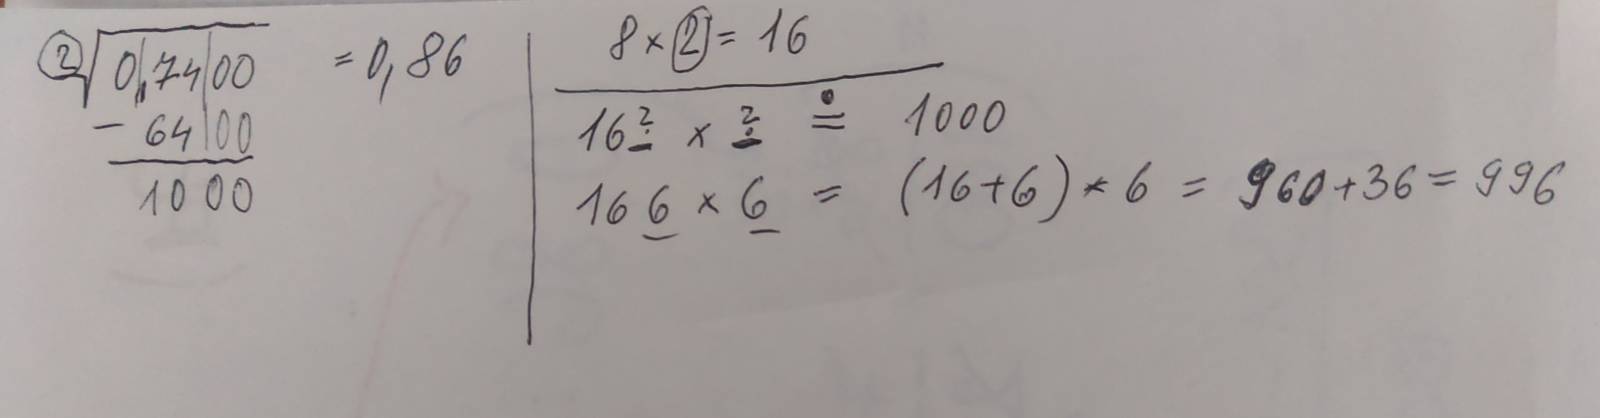 ②√0,7400 = 0,86
- 6400
1000
8 × ② = 16
16? × ? ≐ 1000
16 6 × 6 = (16+6) * 6 = 960+36 = 996